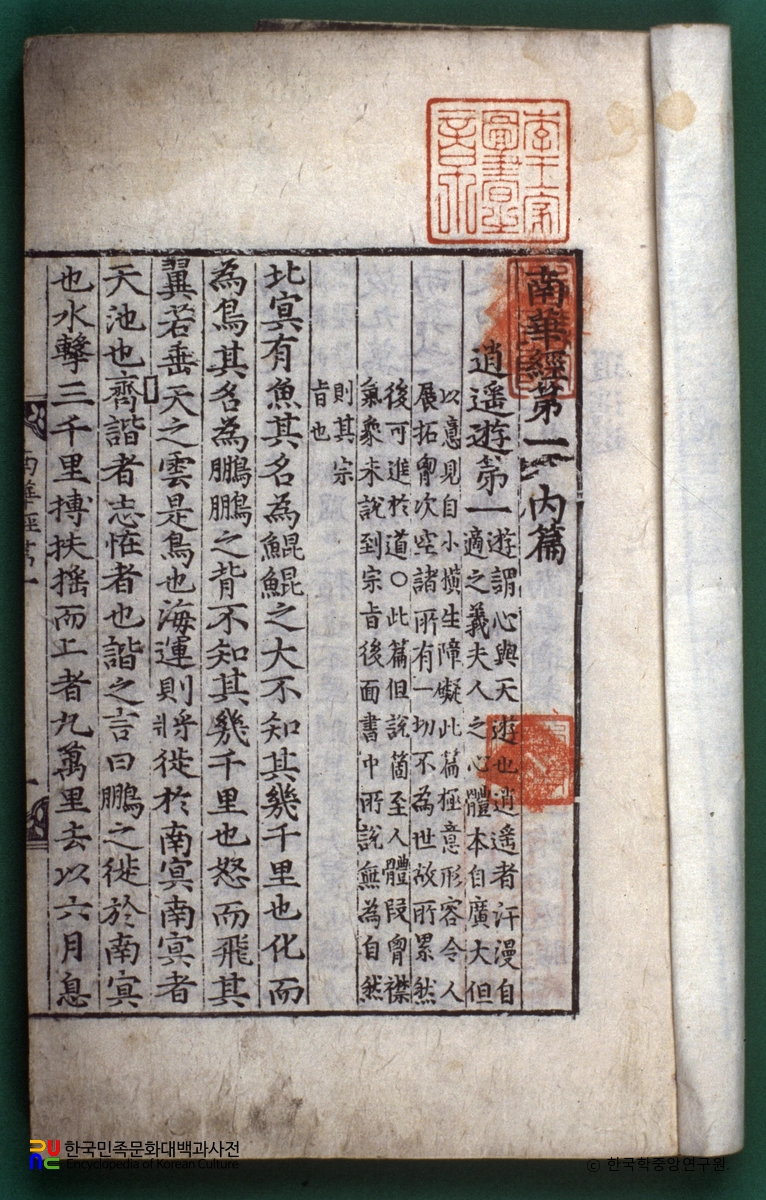 李王家圖書之章
南華經第一 內篇
逍遙遊第一
遊謂心與天遊也逍遙者汗漫自
適之義夫人之心體本自廣大但
以意見自小橫生障礙此篇極意形容令人
展拓胷次空諸所有一切不為世故所累然
後可進於道○此篇但說箇至人體段胷襟
氣象未說到宗旨後面書中所說無為自然
則其宗
旨也
北冥有魚其名為鯤鯤之大不知其幾千里也化而
為鳥其名為鵬鵬之背不知其幾千里也怒而飛其
翼若垂天之雲是鳥也海運則將徙於南冥南冥者
天池也齊諧者志怪者也諧之言曰鵬之徙於南冥
也水擊三千里摶扶搖而上者九萬里去以六月息
한국민족문화대백과사전
Encyclopedia of Korean Culture
© 한국학중앙연구원.